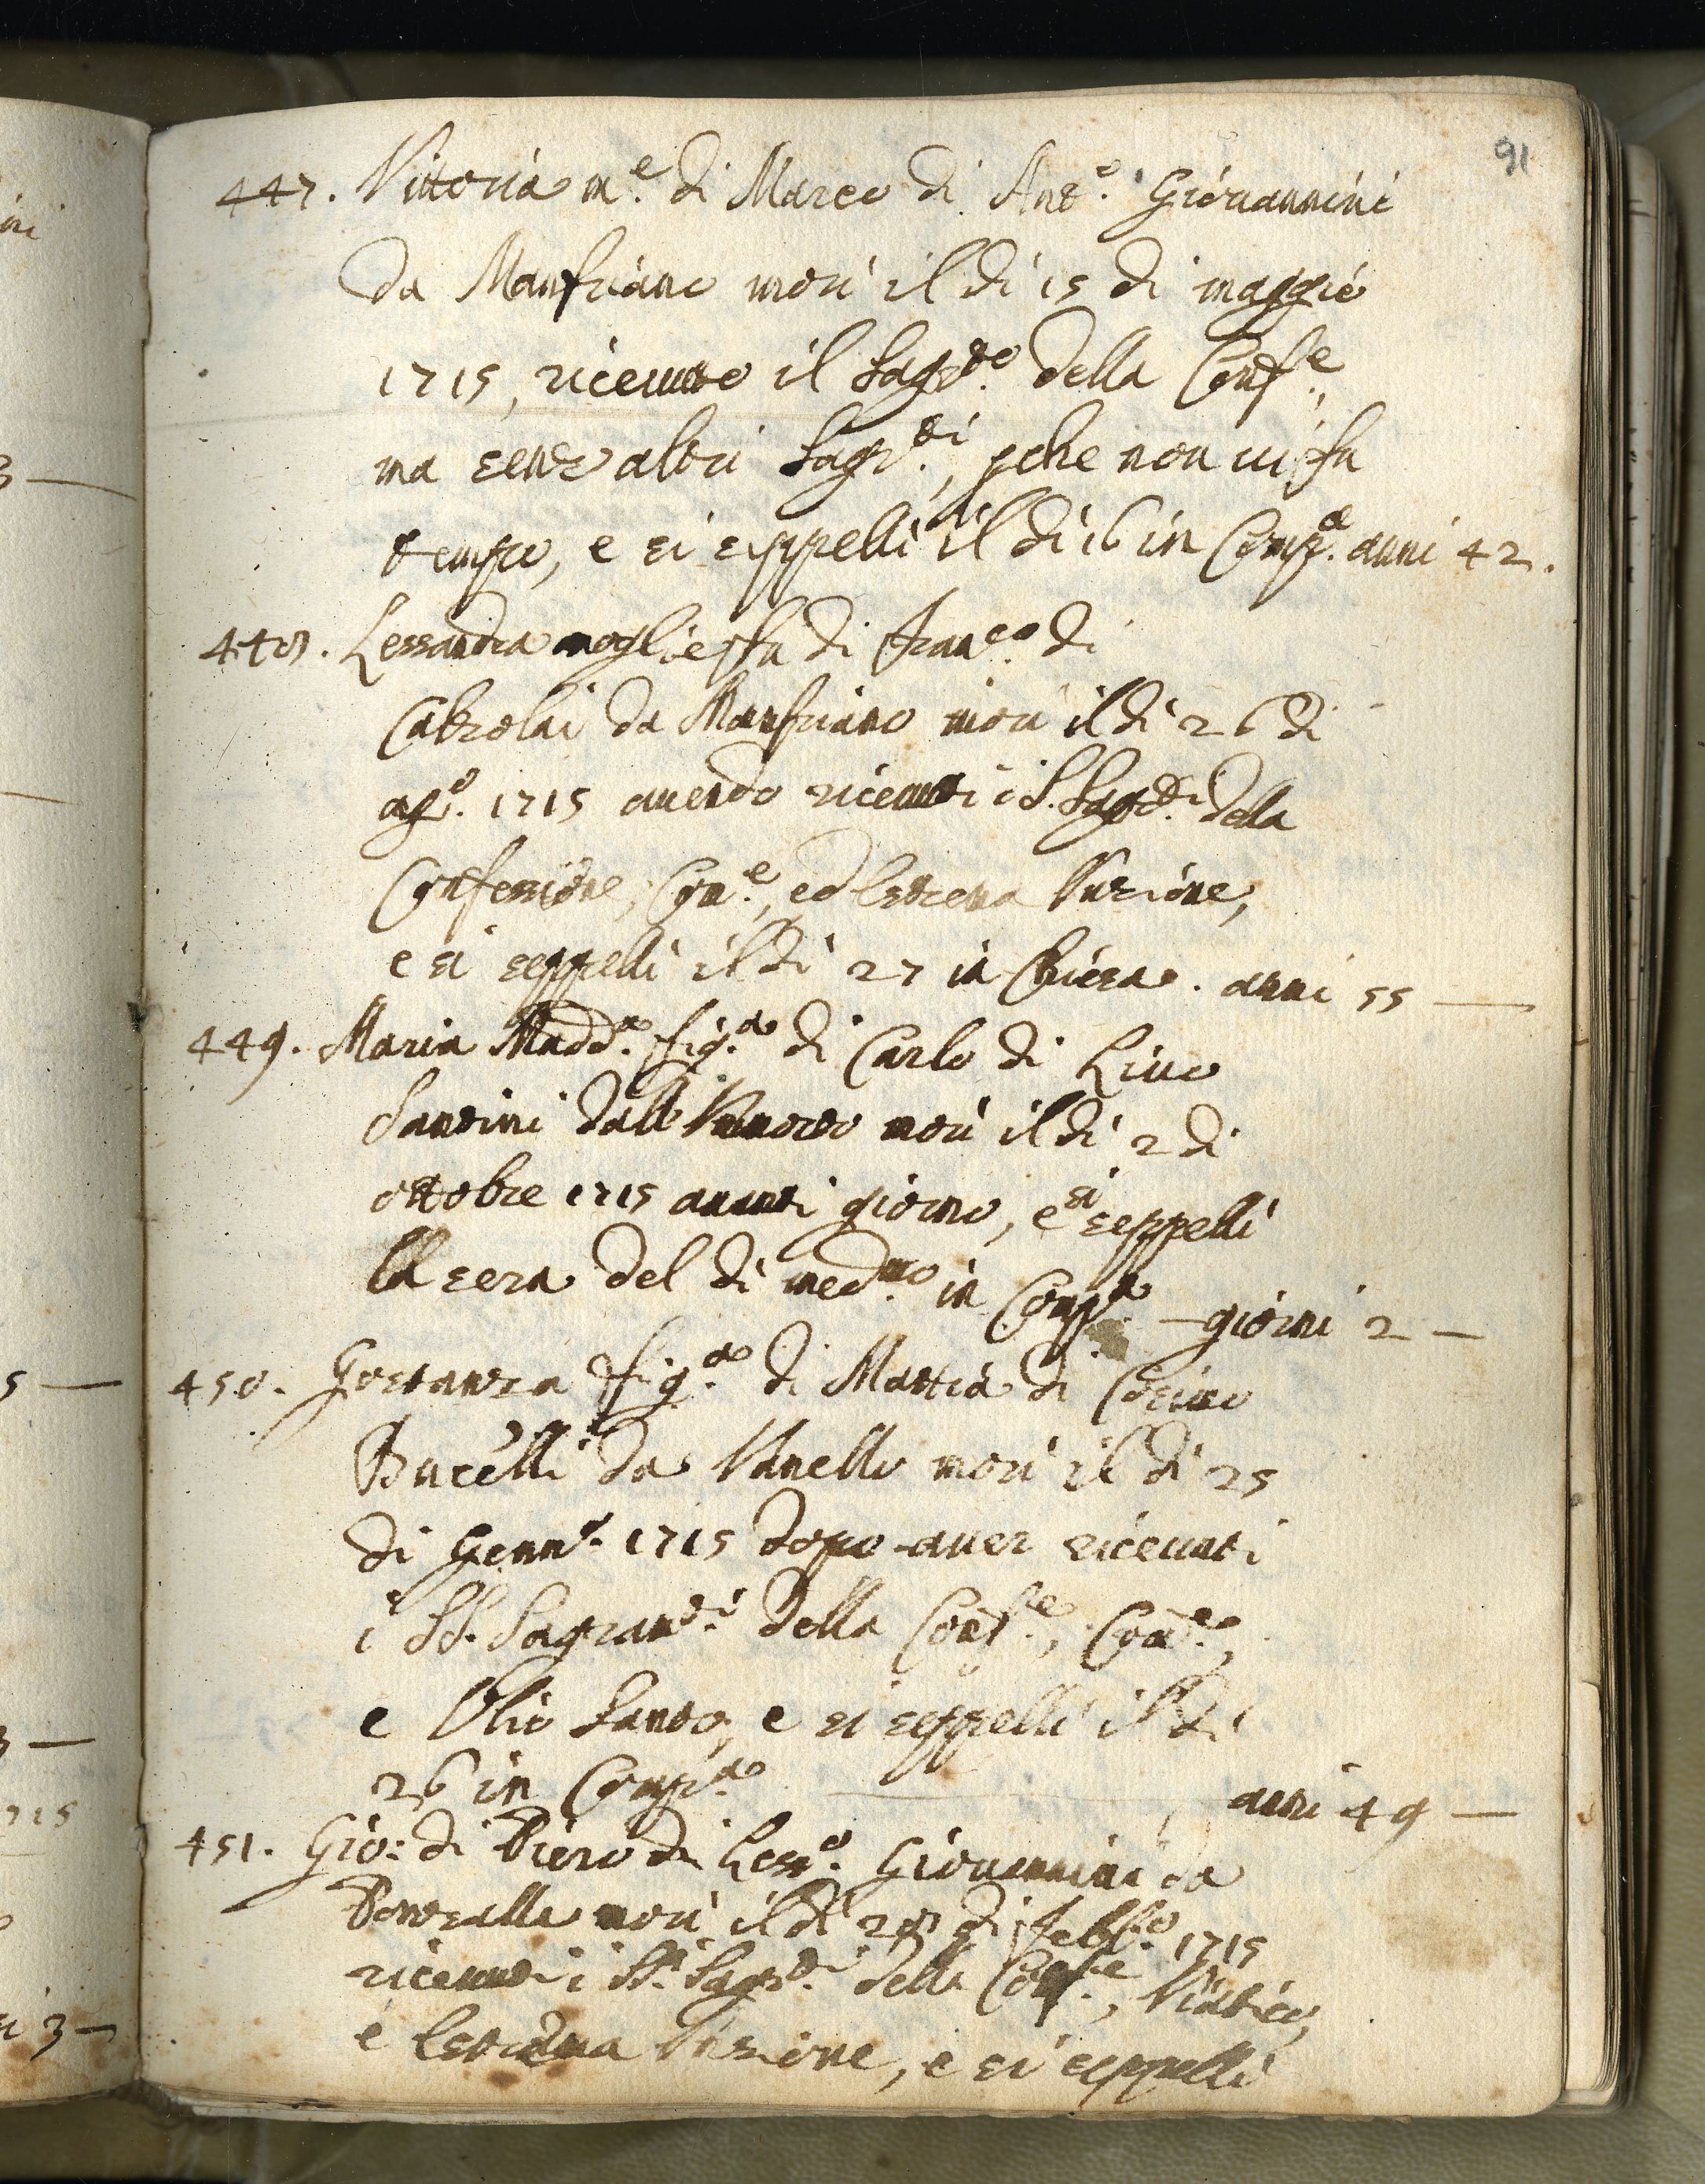 91
447. Vittoria m.e di Marco di Ant.o Giovannini
da Manfriano morì il dì 15 di maggio
1715, riceuuto il Sagr.to della Conf.e,
ma senz altri Sagr.ti, pche non ui fu
tempo, e si seppellì il dì 16 in Comp.a anni 42.
448. Lessandra moglie fu di Fran.co di
da Manfriano morì il dì 26 di
ag.o 1715 auendo riceuuti i S. Sagr.ti della
Confessione, Com.e, ed Estrema Unzione,
e si seppellì il dì 27 in Chiesa. anni 55 —
449. Maria Madd.a fig.a di Carlo di Liuo
Santini dall morì il dì 2 di
ottobre 1715 auanti giorno, e si seppellì
la sera del dì med.mo in Comp.a — giorni 2 —
450. Gostanza fig.a di Mattia di Cosimo
Bucelli da Vanello morì il dì 25
di Genn.o 1715 dopo auer riceuuti
i SS. Sagram.ti della Conf.e, Com.e,
e Olio Santo, e si seppellì il dì
26 in Comp.a anni 49 —
451. Gio: di Piero di Less.o Giouannini da
morì il dì 28 di Febb.o 1715
riceuuti i SS. Sagr.ti della Conf.e, Viatico,
e Estrema Unzione, e si seppellì